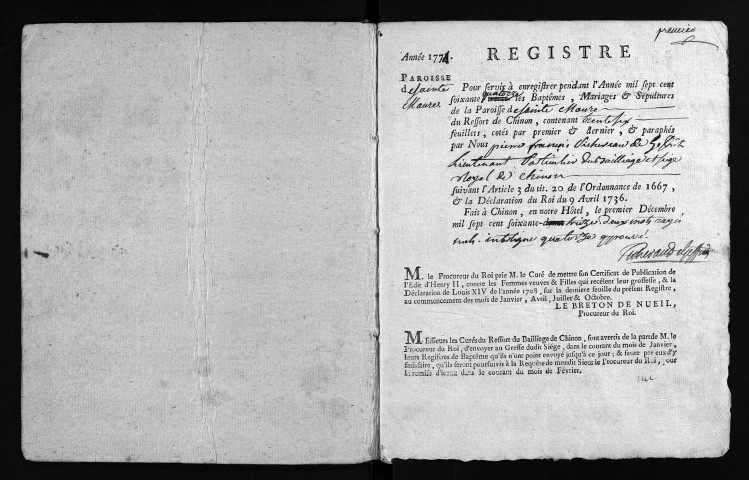 premier
Année 1774. REGISTRE
PAROISSE
de Sainte
Maure
Pour servir à enregistrer pendant l'Année mil sept cent
soixante quatorze les Baptêmes, Mariages & Sépultures
de la Paroisse de Sainte Maure
du Ressort de Chinon, contenant trente six
feuillets, cotés par premier & dernier, & paraphés
par Nous pierre françois
Lieutenant Particulier du Bailliage et siege
Royal de Chinon
suivant l'Article 3 du tit. 20 de l'Ordonnance de 1667,
& la Déclaration du Roi du 9 Avril 1736.
Fait à Chinon, en notre Hôtel, le premier Décembre
mil sept cent soixante treize deux mots rayés
nuls. interligne quatorze approuvé
M. le Procureur du Roi prie M. le Curé de mettre son Certificat de Publication de
l'Edit d'Henry II, contre les Femmes veuves & Filles qui recélent leur grossesse, & la
Déclaration de Louis XIV de l'année 1708, sur la derniere feuille du présent Registre,
au commencement des mois de Janvier, Avril, Juillet & Octobre.
LE BRETON DE NUEIL,
Procureur du Roi.
Messieurs les Curés du Ressort du Bailliage de Chinon, sont avertis de la part de M. le
Procureur du Roi, d'envoyer au Greffe dudit Siége, dans le courant du mois de Janvier,
leurs Registres de Baptême qu'ils n'ont point envoyé jusqu'à ce jour; & faute par eux d'y
satisfaire, qu'ils seront poursuivis à la Requête de mondit Sieur le Procureur du Roi, pour
la remise d'iceux dans le courant du mois de Février.